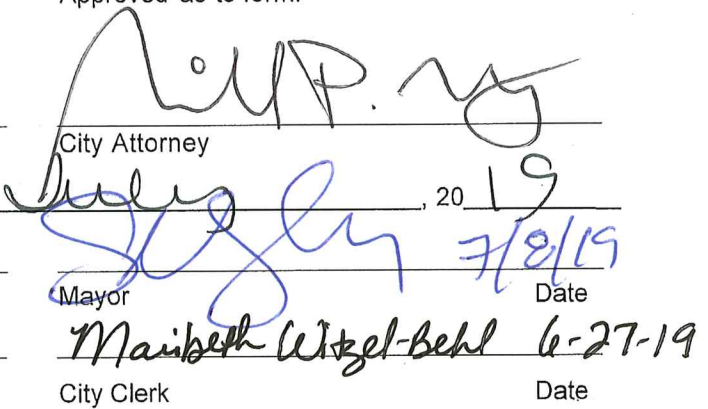 Approved as to form:
P.
City Attorney
July, 20 19
7/8/19
Mayor Date
Maribeth Witzel-Behl 6-27-19
City Clerk Date